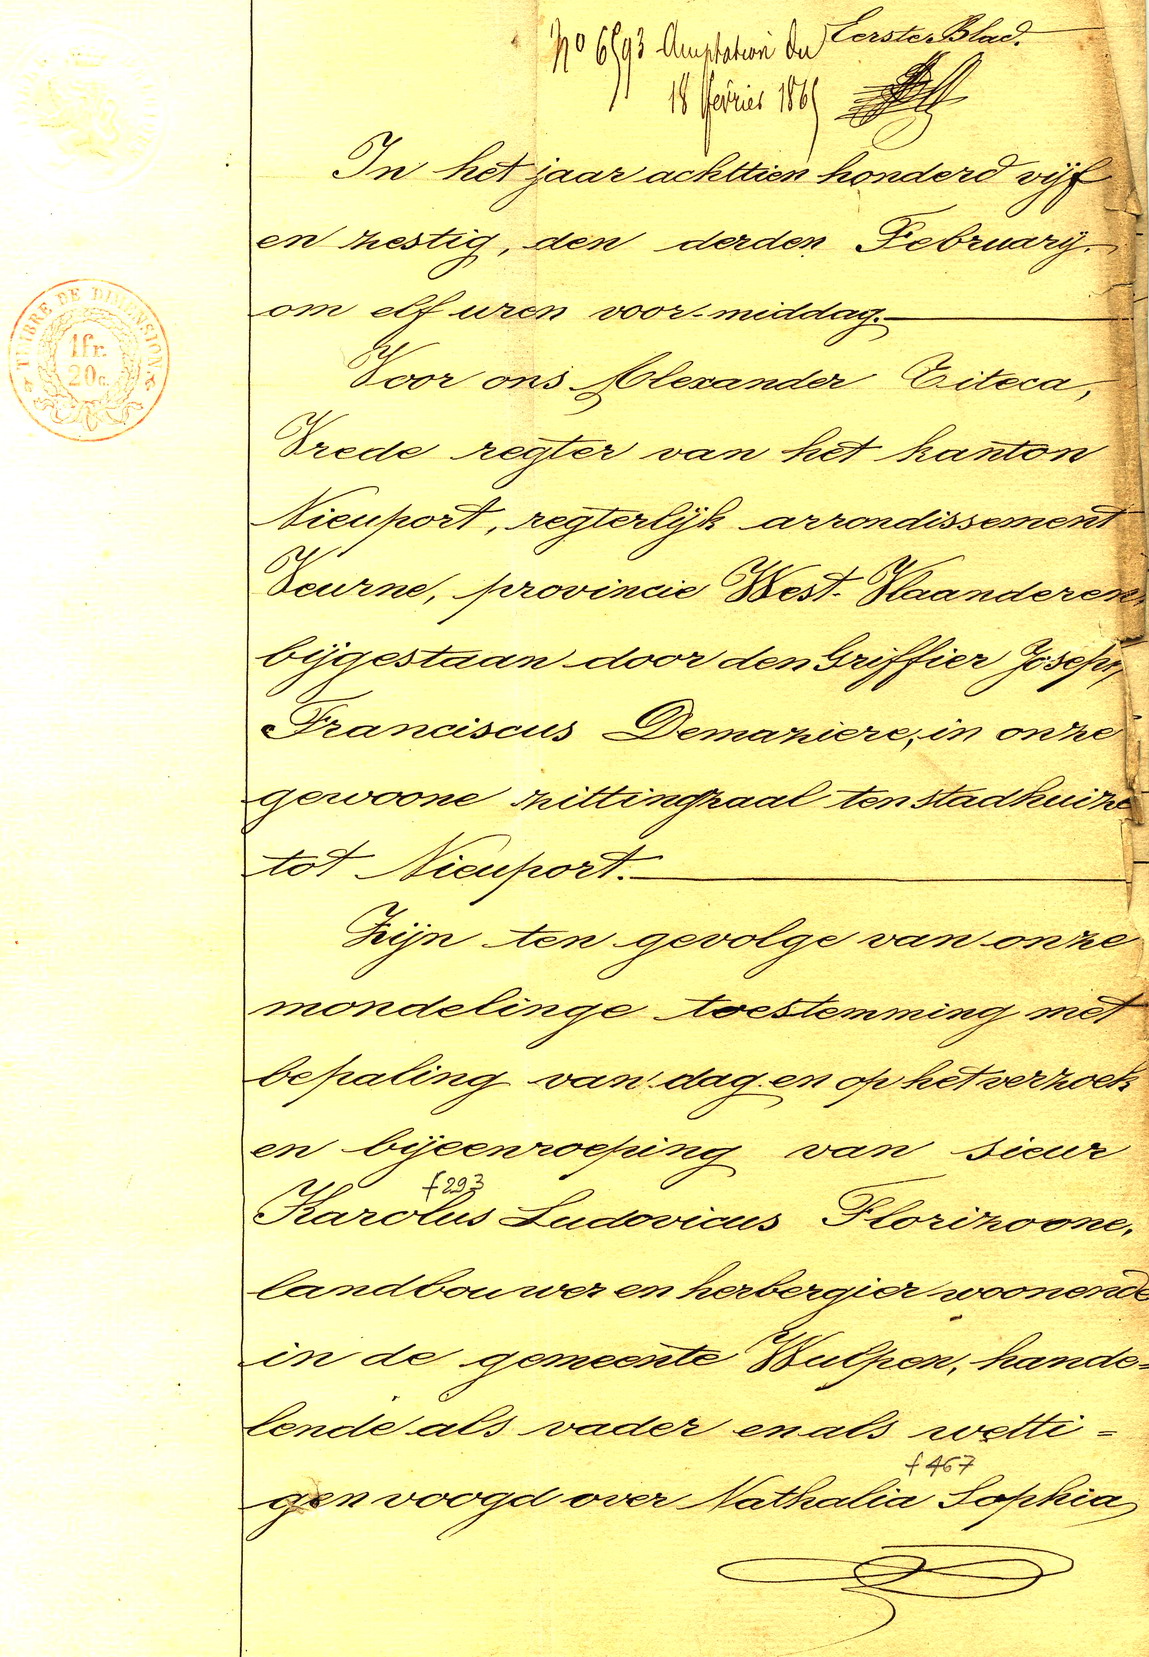 Eerste Blad.
No 6593 Amptation du
18 fevrier 1865
In het jaar achttien honderd vijf
en zestig, den derden February.
om elf uren voor-middag.
TIMBRE DE DIMENSION
1 fr.
20 c.
Voor ons Alexander Titeca,
Vrede regter van het kanton
Nieuport, regterlijk arrondissement
Veurne, provincie West-Vlaanderen,
bijgestaan door den Griffier Joseph
Franciscus Demaziere, in onze
gewoone zittingzaal ten stadhuize
tot Nieuport.
Zijn ten gevolge van onze
mondelinge toestemming met
bepaling van dag en op het verzoek
en bijeenroeping van sieur
f 293
Karolus Ludovicus Florizoone,
landbouwer en herbergier woonende
in de gemeente Wulpen, hande=
lende als vader en als wetti=
f 467
gen voogd over Nathalia Sophia